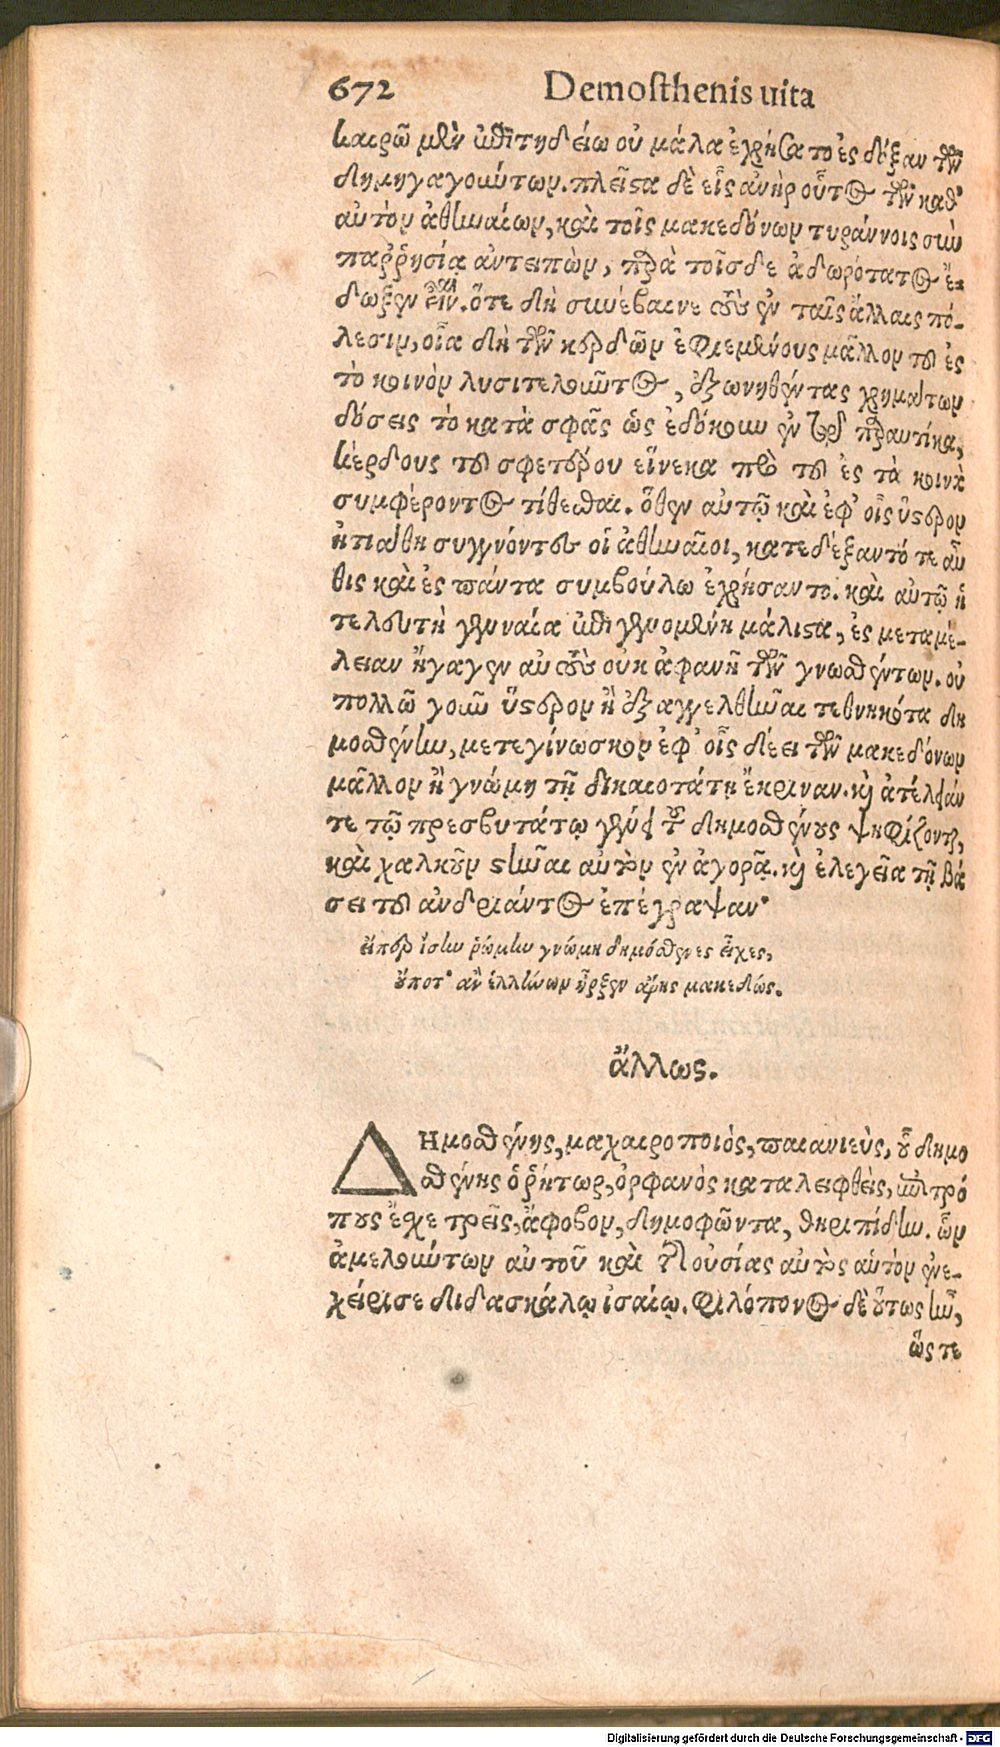 672 Demosthenis uita
καιρῶ μὲν ἐπιτηδείω οὐ μάλα ἐχρήσατο ἐς δόξαν τῶν
δημηγαγορούντων. πλεῖςα δὲ εἷς ἀνὴρ οὗτος τῶν καθ'
αὑτὸν ἀθηναίων, καὶ τοῖς μακεδόνων τυράννοις σὺν
παῤῥησία ἀντειπὼν, παρὰ τοῖσδε ἀδωρότατος ἔ-
δωξεν εἶναι. ὅτε δὴ συνέβαινε τοὺς ἐν ταῖς ἄλλαις πό-
λεσιν, οἷα δὴ τῶν κερδῶν ἐφιεμένους μᾶλλον τοῦ ἐς
τὸ κοινὸν λυσιτελοῦντος, ἐξωνηθέντας χρημάτων
δόσεις τὸ κατὰ σφᾶς ὡς ἐδόκουν ἐν τῷ παραυτίκα,
κέρδους τοῦ σφετέρου εἵνεκα πρὸ τοῦ ἐς τὰ κοινὰ
συμφέροντος τίθεσθαι. ὅθεν αὐτῷ καὶ ἐφ' οἷς ὕςερον
ἠτιάθη συγγνόντες οἱ ἀθηναῖοι, κατεδέξαντό τε αὖ
θις καὶ ἐς πάντα συμβούλω ἐχρήσαντο. καὶ αὐτῷ ἡ
τελευτὴ γενναία ἐπιγενομένη μάλιςα, ἐς μεταμέ-
λειαν ἤγαγεν αὐτοὺς οὐκ ἀφανῆ τῶν γνωσθέντων. οὐ
πολλῶ γοῦν ὕςερον ἢ ἐξαγγελθῆναι τεθνηκότα δη
μοσθένην, μετεγίνωσκον ἐφ' οἷς δέει τῶν μακεδόνων
μᾶλλον ἢ γνώμῃ τῇ δικαιοτάτῃ ἔκριναν. καὶ ἀτέλειάν
τε τῷ πρεσβυτάτῳ γένει τοῦ δημοσθένους ψηφίζονται,
καὶ χαλκοῦν ςῆναι αὐτὸν ἐν ἀγορᾷ. καὶ ἐλεγεῖα τῇ βά
σει τοῦ ἀνδριάντος ἐπέγραψαν·
εἴπερ ἴσην ῥώμην γνώμη δημόσθενες εἶχες,
οὔποτ' ἂν ἑλλήνων ἦρξεν ἄρης μακεδώς.
ἄλλως.
ΔΗμοσθένης, μαχαιροποιὸς, παιανιεὺς, οὗ δημο
σθένης ὁ ῥήτωρ, ὀρφανὸς καταλειφθεὶς, ἐπιτρό
πους ἔσχε τρεῖς, ἄφοβον, δημοφῶντα, θηριπίδην. ὧν
ἀμελούντων αὐτοῦ καὶ τῆς οὐσίας αὐτὸς αὑτὸν ἐνε-
χείρισε διδασκάλῳ ἰσαίῳ. φιλόπονος δὲ οὕτως ἦν,
ὥς τε
Digitalisierung gefördert durch die Deutsche Forschungsgemeinschaft - DFG